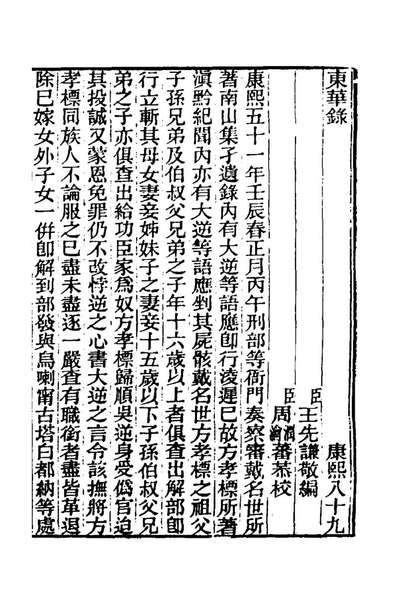 東華錄 康熙八十九
臣王先謙敬編
臣周潤蕃周瀹蕃恭校
康熙五十一年壬辰春正月丙午刑部等衙門奏察審戴名世所
著南山集孑遺錄內有大逆等語應即行淩遲已故方孝標所著
滇黔紀聞內亦有大逆等語應剉其屍骸戴名世方孝標之祖父
子孫兄弟及伯叔父兄弟之子年十六歲以上者俱查出解部即
行立斬其母女妻妾姊妹子之妻妾十五歲以下子孫伯叔父兄
弟之子亦俱查出給功臣家為奴方孝標歸順吳逆身受偽官迨
其投誠又蒙恩免罪仍不改悖逆之心書大逆之言令該撫將方
孝標同族人不論服之已盡未盡逐一嚴查有職銜者盡皆革退
除已嫁女外子女一併即解到部發與烏喇甯古塔白都納等處